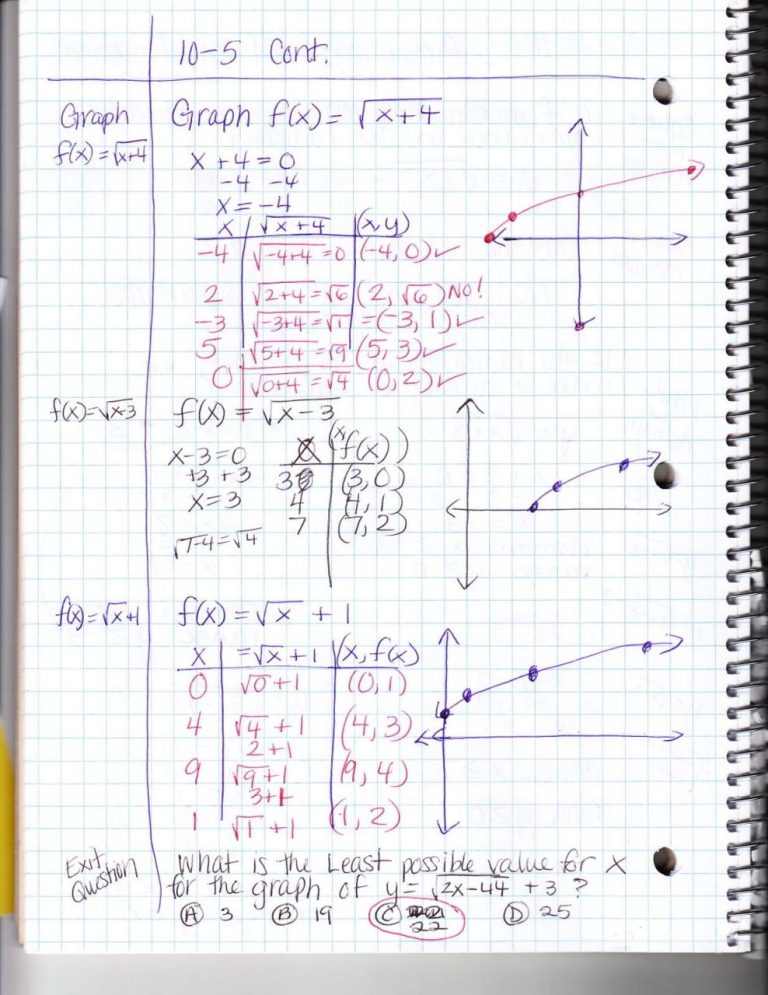 10-5 Cont.
Graph
f(x)=√x+4
Graph f(x)= √x+4
x +4 = 0
-4 -4
x = -4
x √x+4 (x,y)
-4 √-4+4 = 0 (-4, 0) ✓
2 √2+4 = √6 (2, √6) NO!
-3 √-3+4 = √1 = (-3, 1) ✓
5 √5+4 = √9 (5, 3) ✓
0 √0+4 = √4 (0, 2) ✓
f(x)=√x-3
f(x) = √x-3
x-3=0
+3 +3
x = 3
√7-4 = √4
(x, f(x))
3 (3, 0)
4 (4, 1)
7 (7, 2)
f(x)=√x+1
f(x) = √x + 1
x =√x + 1 (x, f(x)
0 √0 + 1 (0, 1)
4 √4 + 1 (4, 3)
2 + 1
9 √9 + 1 (9, 4)
3+1
1 √1 + 1 (1, 2)
Exit
Question
What is the Least possible value for x
for the graph of y= √2x-44 + 3 ?
A 3 B 19 C 22 D 25